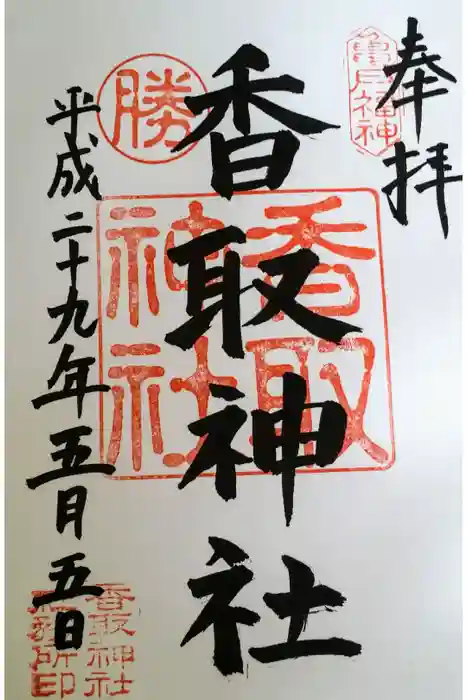 奉拝
香取神社
平成二十九年五月五日
勝
香取
神社
香取神社
社務所印